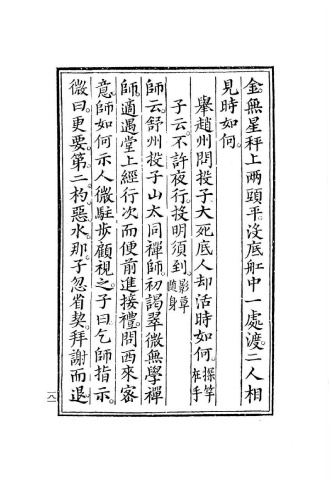 金。無星秤上兩頭平。沒底舡中一處渡。二人相
見時如何。
舉趙州問投子大死底人却活時如何。探竿在手
子云。不許夜行。投明須到。影草隨身
師云。舒州投子山大同禪師。初謁翠微無學禪
師。適遇堂上經行次。而便前進接禮。問西來密
意。師如何示人。微駐步顧視之。子曰。乞師指示。
微曰。更要第二杓惡水那。子忽省契。拜謝而退。
一八